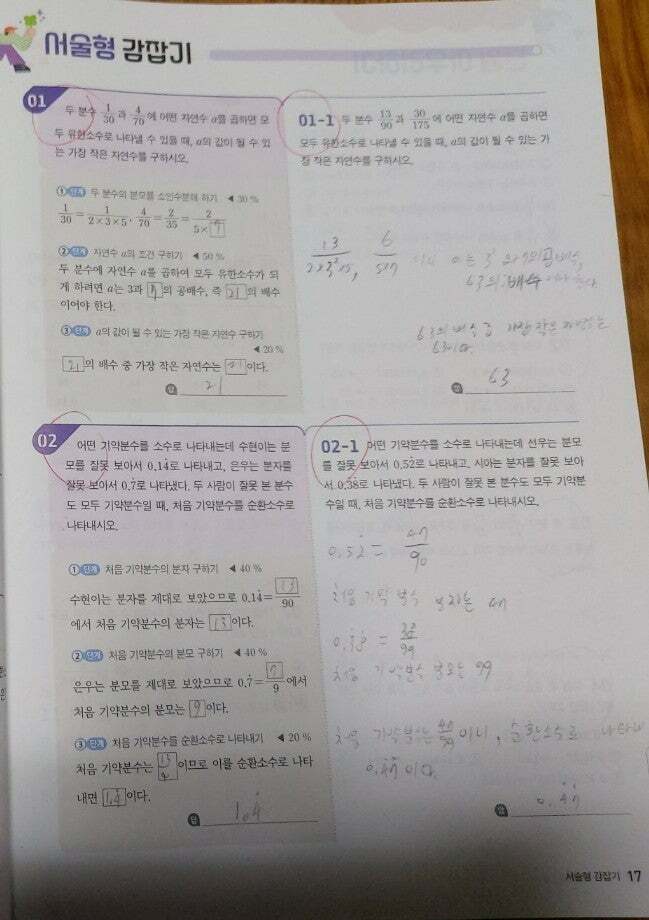 서술형 감잡기
01
두 분수 1/30 과 4/70 에 어떤 자연수 a를 곱하면 모
두 유한소수로 나타낼 수 있을 때, a의 값이 될 수 있
는 가장 작은 자연수를 구하시오.
① 단계 두 분수의 분모를 소인수분해 하기 ◀ 30 %
1/30 = 1/(2×3×5), 4/70 = 2/35 = 2/(5×7)
② 단계 자연수 a의 조건 구하기 ◀ 50 %
두 분수에 자연수 a를 곱하여 모두 유한소수가 되
게 하려면 a는 3과 7의 공배수, 즉 21의 배수
이어야 한다.
③ 단계 a의 값이 될 수 있는 가장 작은 자연수 구하기
◀ 20 %
21의 배수 중 가장 작은 자연수는 21이다.
답 21
01-1 두 분수 13/90 과 30/175 에 어떤 자연수 a를 곱하면
모두 유한소수로 나타낼 수 있을 때, a의 값이 될 수 있는 가
장 작은 자연수를 구하시오.
13/(2×3²×5), 6/(5×7) a는 3²과 7의 공배수,
63의 배수
63의 배수 중 가장 작은 자연수는
63이다.
답 63
02
어떤 기약분수를 소수로 나타내는데 수현이는 분
모를 잘못 보아서 0.14̇로 나타내고, 은우는 분자를
잘못 보아서 0.7̇로 나타냈다. 두 사람이 잘못 본 분수
도 모두 기약분수일 때, 처음 기약분수를 순환소수로
나타내시오.
① 단계 처음 기약분수의 분자 구하기 ◀ 40 %
수현이는 분자를 제대로 보았으므로 0.14̇ = 13/90
에서 처음 기약분수의 분자는 13이다.
② 단계 처음 기약분수의 분모 구하기 ◀ 40 %
은우는 분모를 제대로 보았으므로 0.7̇ = 7/9 에서
처음 기약분수의 분모는 9이다.
③ 단계 처음 기약분수를 순환소수로 나타내기 ◀ 20 %
처음 기약분수는 13/9 이므로 이를 순환소수로 나타
내면 1.4̇이다.
답 1.4̇
02-1 어떤 기약분수를 소수로 나타내는데 선우는 분모
를 잘못 보아서 0.52̇로 나타내고, 시아는 분자를 잘못 보아
서 0.3̇8̇로 나타냈다. 두 사람이 잘못 본 분수도 모두 기약분
수일 때, 처음 기약분수를 순환소수로 나타내시오.
0.52̇ = 47/90
처음 기약 분수 분자는 47
0.3̇8̇ = 38/99
처음 기약분수 분모는 99
처음 기약분수는 이니, 순환소수로 나타내
0.4̇7̇이다.
답 0.4̇7̇
서술형 감잡기 17